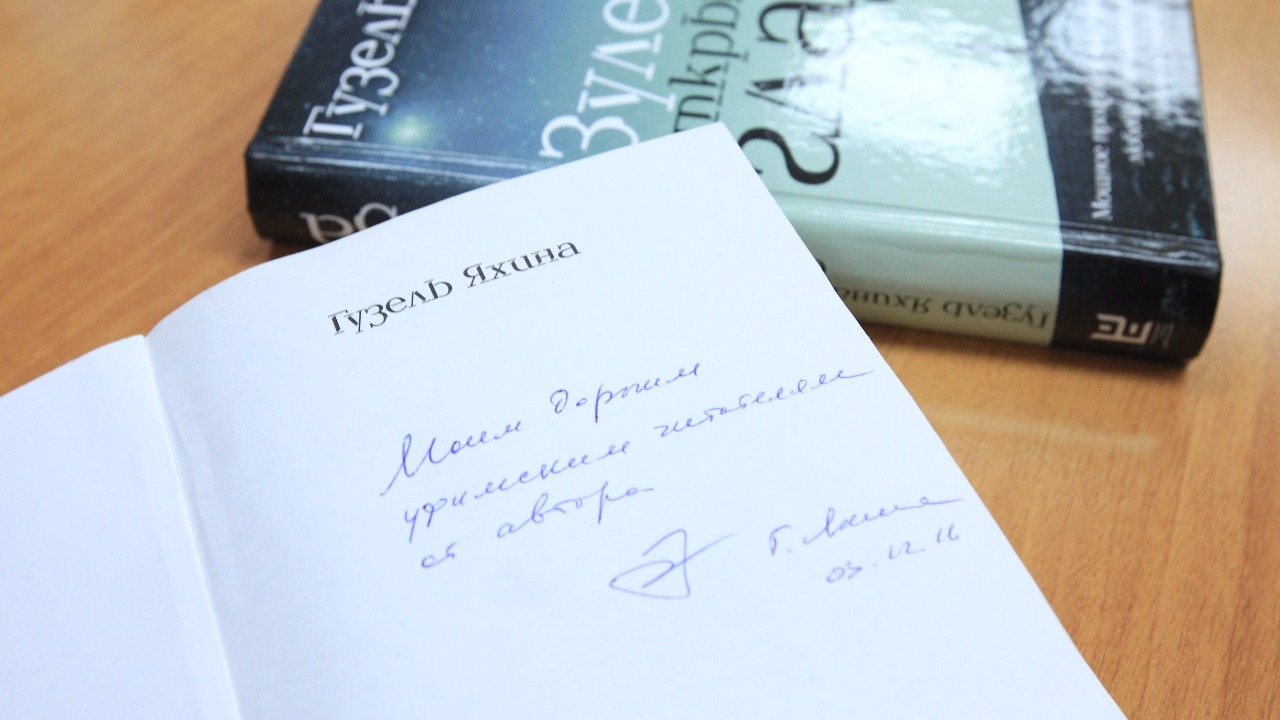 Гузель
Зуле
ткры
гла
Мощное
Гузель Яхина
Гузель Яхина
Моим дорогим
уфимским читателям
от автора
Г. Яхина
03.12.16